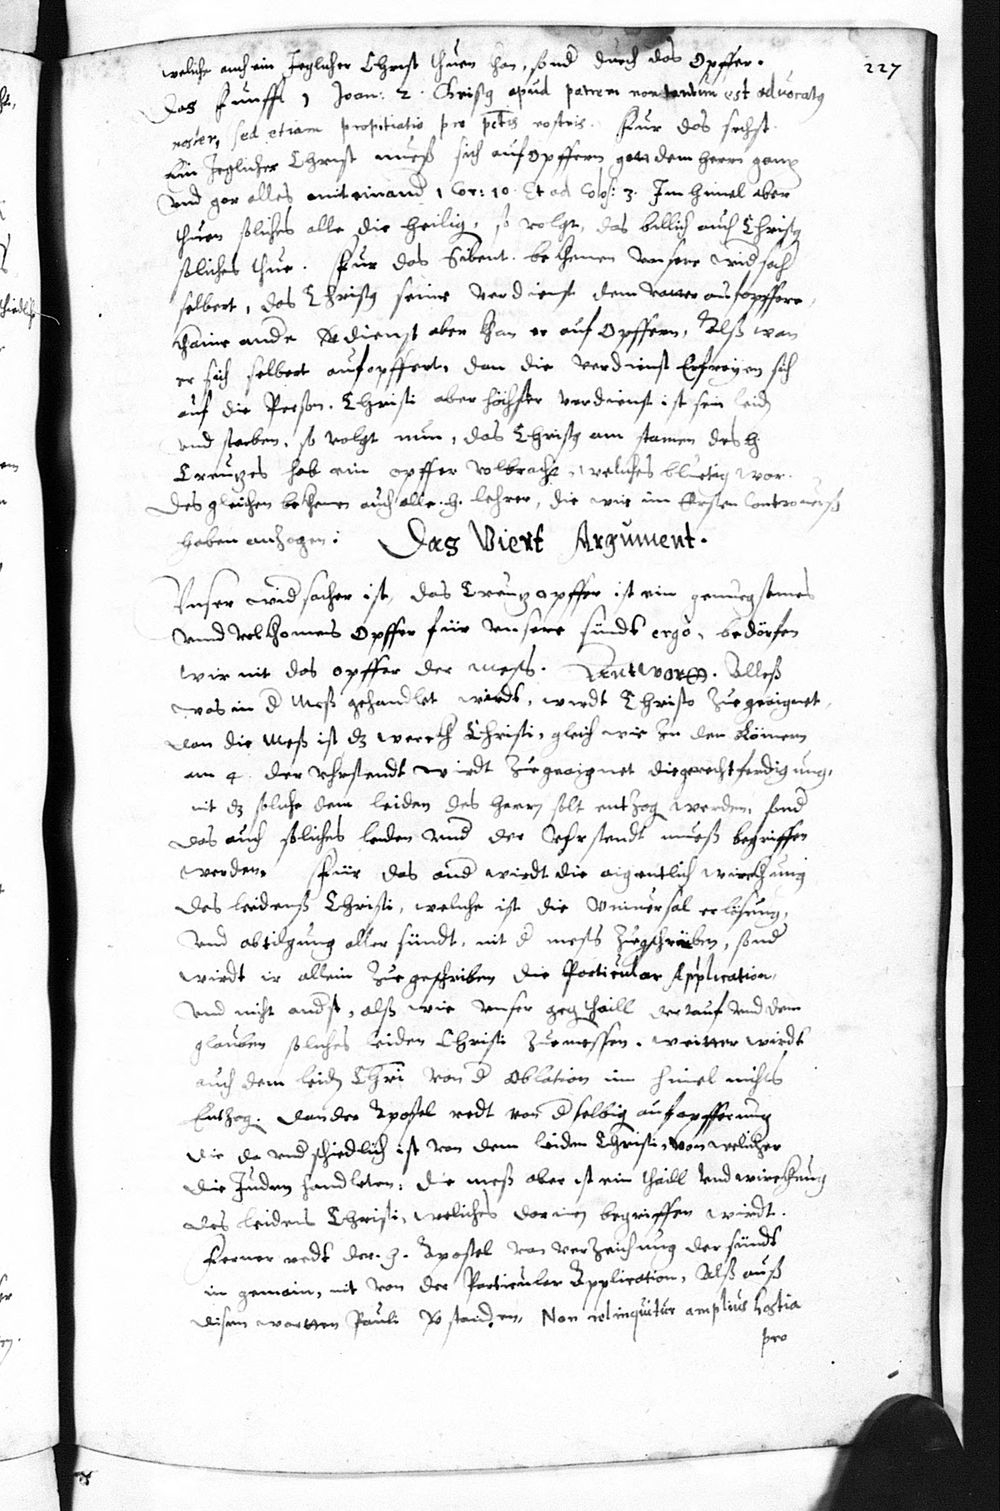 227
welche auch ein Jeglicher Christ thuen kan, sond durch das Opffer.
Das Funfft 1 Joan: 2. Christg apud patrem non tantum est advocatg
noster, sed etiam propitiatio pro pctis nostris. Fur das sechst
Ein Jeglicher Christ mueß sich auf Opffern gott dem herrn gantz
und gar alles miteinand 1 Cor: 10. Et ad Colos: 3. Im himel aber
thuen soliches alle die heilig, so volgt, das billich auch Christg
soliches thue. Fur das Sibent. bekhenen unsere widsach
selbert, das Christg seine verdienst dem vatter aufopffere,
khaine ande verdienst aber kan er auf Opffern, Alß wan
er sich selbert aufopffert, dan die verdienst sich
auf die Person. Christi aber höchster verdienst ist sein leid
und sterben, so volgt nun, das Christg am stamen des h
Creutzes hab ein opffer volbracht, welches bluetig war.
Desgleichen bekhenen auch alle h. lehrer, die wir im Ersten Controuerß
haben anzogen: Das Viert Argument.
Unser widsacher ist, das Creutzopffer ist ein genuegsames
unnd volkhomes Opffer für unsere sündt ergo, bedörfen
wir nit das opffer der Mess. Antwortt. Alleß
was in d Meß gehandlet wirdt, wirdt Christo zuegeaignet,
dan die Meß ist dz werckh Christi, gleich wie zu den Römern
am 4. der Uhrstendt wirdt zuegeaignet die gerechtferdigung,
nit dz solche dem leiden des herrn solt entzog werden, sond
das auch soliches leiden und der Uhrstendt mueß begriffen
werden. Für das and wirdt die aigentlich wirckhung
des leidenß Christi, welche ist die Uniuersal erlösung,
und abtilgung aller sündt, nit d mess zuegschriben, sond
wirdt ir allein zuegeschriben die Particular Application,
und nicht andst, alß wie unser gegthaill der tauf und dem
glauben soliches leiden Christi zuemessen. weitter wirdt
auch dem leid Chri von d Oblation im himel nichts
Entzog. dan der Apostel redt von d selbig aufopfferung
die da undschiedlich ist von dem leiden Christi, von welicher
die Juden handleten: die meß aber ist ein thaill und wirckhung
des leidens Christi, weliches darinen begriffen wirdt.
Ferner redt der h. Apostel von verzeichung der sündt
in gemain, nit von der Particular Application, Alß auß
disen wortten Pauli zuverstanden, Non relinquitur amplius hostia
pro